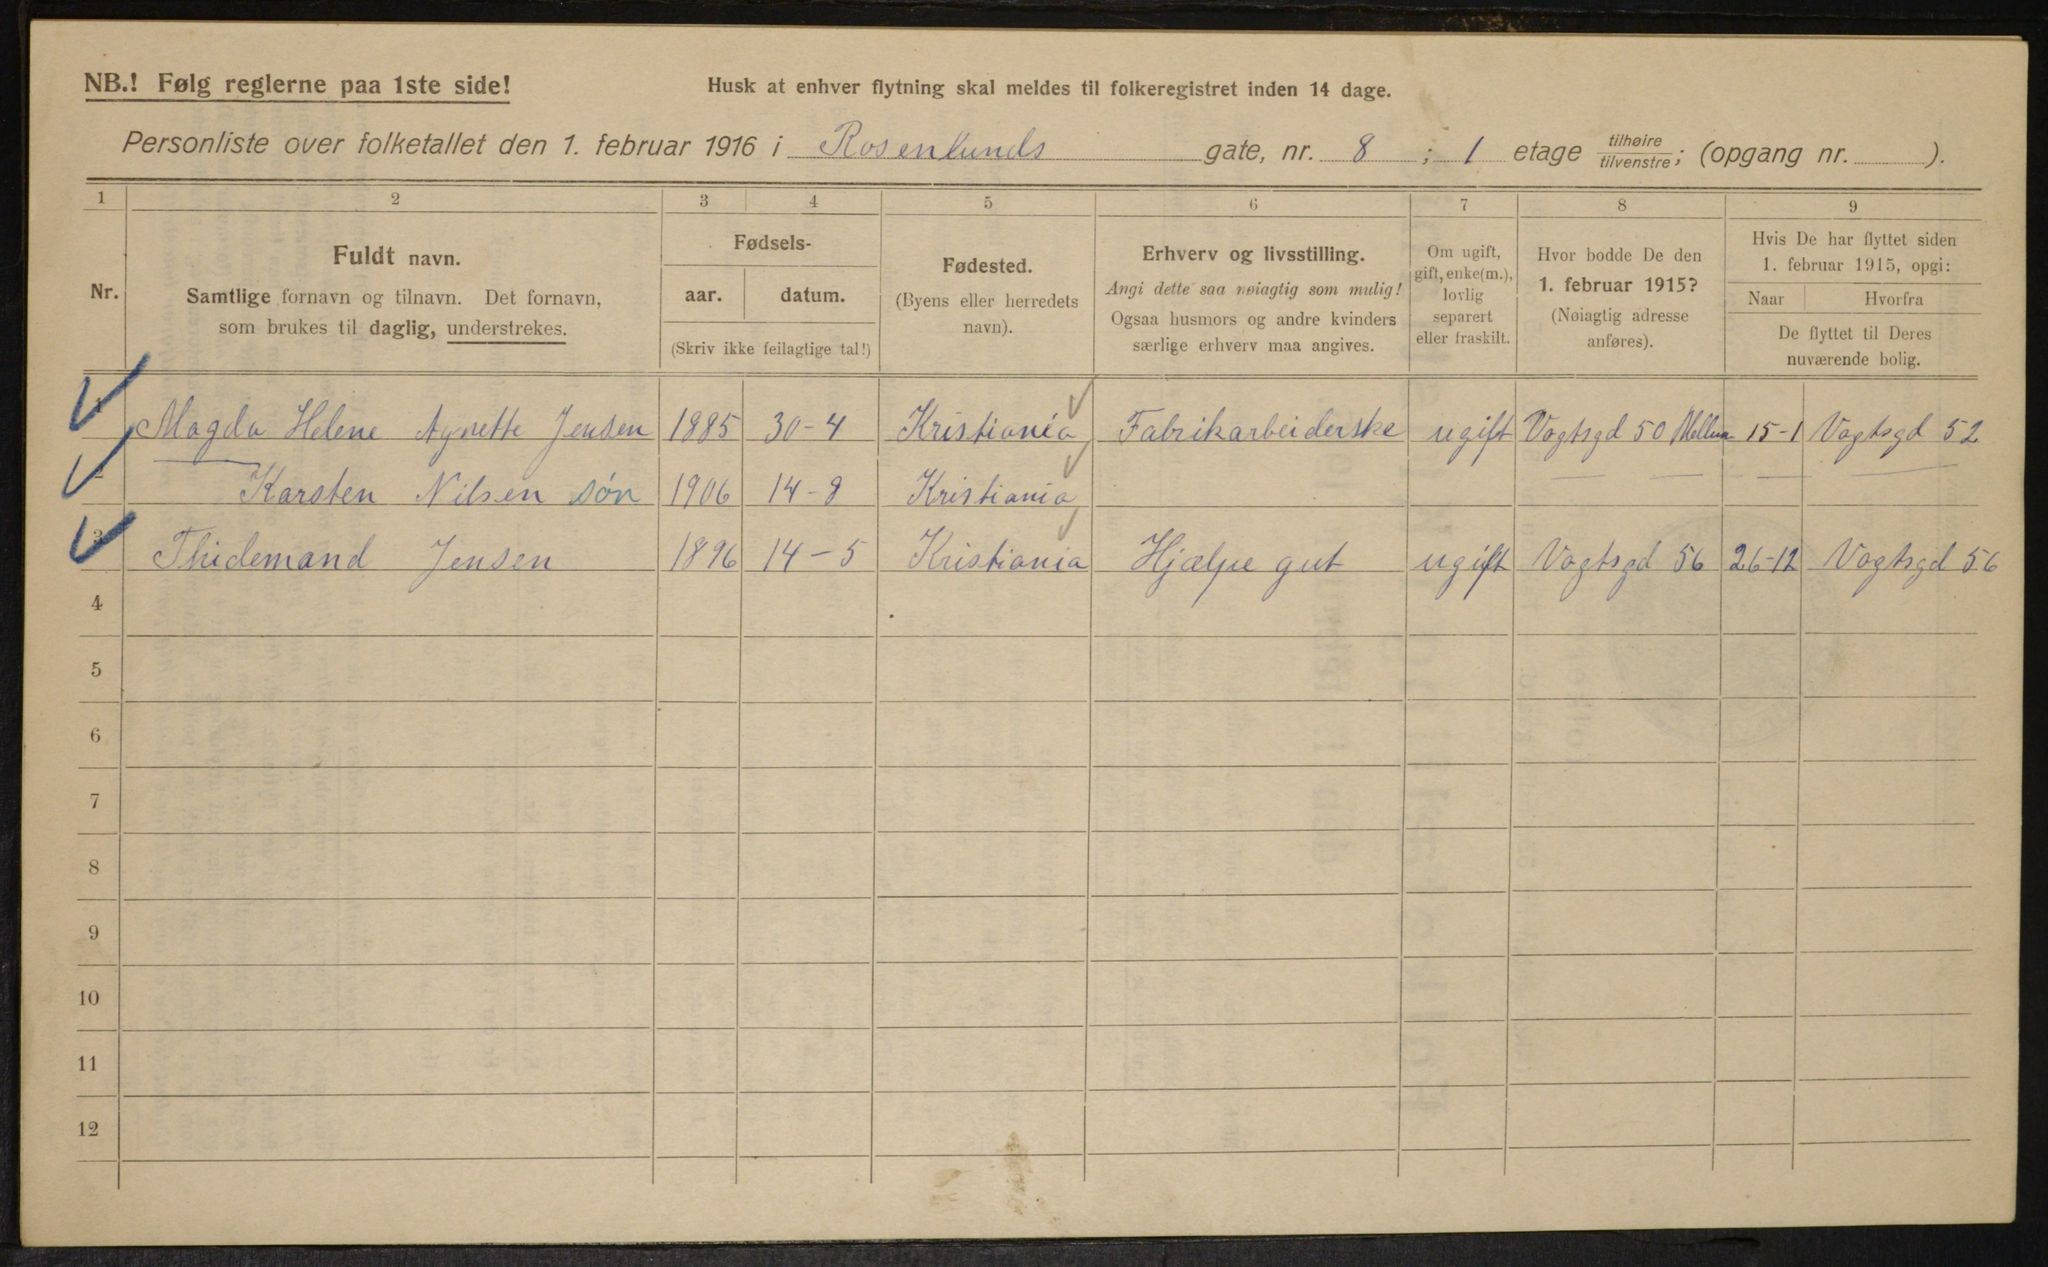 NB.! Følg reglerne paa 1ste side!
Husk at enhver flytning skal meldes til folkeregistret inden 14 dage.
Personliste over folketallet den 1. februar 1916 i Rosenlunds gate, nr. 8 ; 1 etage tilhøire/tilvenstre; (opgang nr. ).
1 2 3 4 5 6 7 8 9
Nr.
Fuldt navn.
Samtlige fornavn og tilnavn. Det fornavn,
som brukes til daglig, understrekes.
Fødsels-
aar. datum.
(Skriv ikke feilagtige tal!)
Fødested.
(Byens eller herredets
navn).
Erhverv og livsstilling.
Angi dette saa nøiagtig som mulig!
Ogsaa husmors og andre kvinders
særlige erhverv maa angives.
Om ugift,
gift, enke(m.),
lovlig
separert
eller fraskilt.
Hvor bodde De den
1. februar 1915?
(Nøiagtig adresse
anføres).
Hvis De har flyttet siden
1. februar 1915, opgi:
Naar Hvorfra
De flyttet til Deres
nuværende bolig.
Magda Helene Agnette Jensen 1885 30-4 Kristiania Fabrikarbeiderske ugift Vogtsgd 50 15-1 Vogtsgd 52
2 Karsten Nilsen søn 1906 14-8 Kristiania — — —
3 Thidemand Jensen 1896 14-5 Kristiania Hjælpe gut ugift Vogtsgd 56 26-12 Vogtsgd 56
4
5
6
7
8
9
10
11
12